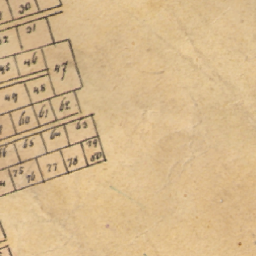 30
32 31
45 46
47
49 48
60 61 62
65 64 63
75 76 77 78 79
80